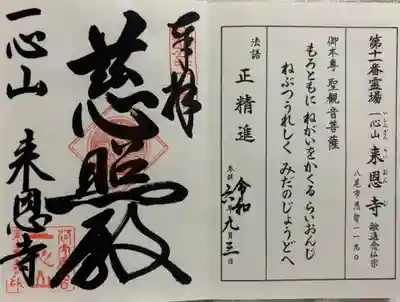 第十一番霊場
一心山 来恩寺 融通念仏宗
いっしんざん らいおんじ
八尾市恩智一一九〇
御本尊 聖観音菩薩
もろともに ねがいをかくる らいおんじ
ねぶつうれしく みだのじょうどへ
法語 正精進
令和
六年九月三日
奉拝
慈照殿
一心山 来恩寺